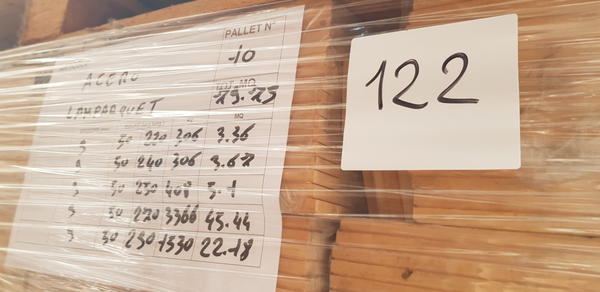 PALLET N°
10
ACERO
TOT. MQ
79.75
LAMPARQUET
MQ
50 220 306 3.36
50 240 306 3.67
50 250 408 5.1
50 270 3366 45.44
50 290 1530 22.18
122